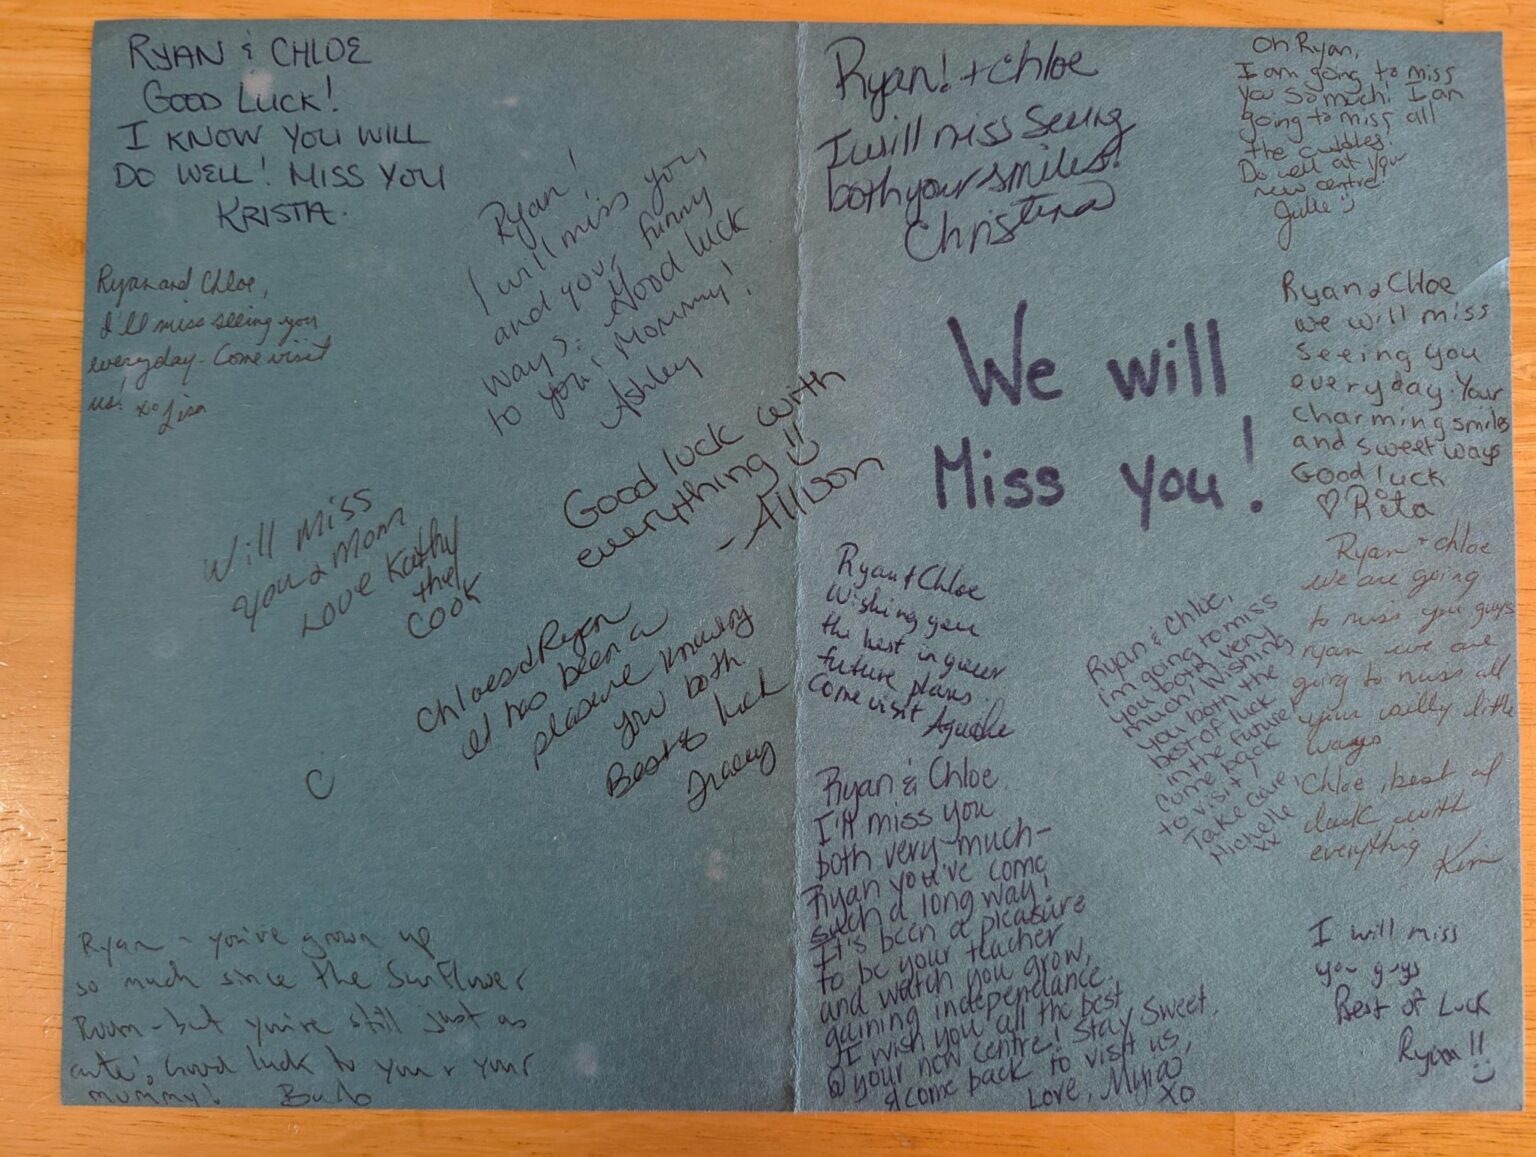 RYAN & CHLOE
GOOD LUCK!
I KNOW YOU WILL
DO WELL! MISS YOU
KRISTA.
Ryan and Chloe,
I'll miss seeing you
everyday - Come visit
us! xo Lisa
Ryan!
I will miss you
and your funny
ways. Good luck
to you & Mommy!
Ashley
Good luck with
everything
- Allison
Will miss
you & Mom
Love Kathy
the
COOK
Chloe and Ryan
it has been a
pleasure knowing
you both
Best of luck
Tracey
C
Ryan - you've grown up
so much since the Sunflower
Room - but you're still just as
cute! Good luck to you & your
mummy!
Ryan! + Chloe
I will miss seeing
both your smiles!
Christina
Oh Ryan,
I am going to miss
you so much! I am
going to miss all
the cuddles!
Do well at your
new centre!
Julie
We will
Miss you!
Ryan & Chloe
we will miss
seeing you
everyday. Your
charming smiles
and sweet ways
Good luck
♡ Rita
Ryan + Chloe
Wishing you
the best in your
future plans.
Come visit
Ryan & Chloe,
I'm going to miss
you both very
much! Wishing
you both the
best of luck
in the future
come back
to visit!
Take care,
Michelle
xx
Ryan + Chloe
we are going
to miss you guys
Ryan we are
going to miss all
your silly little
ways.
Chloe, best of
luck with
everything
Kim
Ryan & Chloe
I'll miss you
both very much -
Ryan you've come
such a long way!
It's been a pleasure
to be your teacher
and watch you grow,
gaining independance.
I wish you all the best
@ your new centre! Stay Sweet.
& come back to visit us,
Love,
xo
I will miss
you guys
Best of Luck
Ryan!!